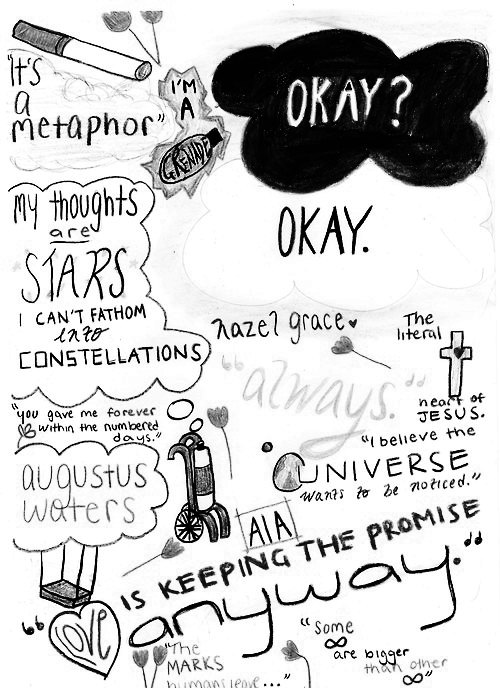 "It's
a
metaphor"
I'M
A
GRENADE
OKAY?
OKAY.
My thoughts
are
STARS
I CAN'T FATHOM
into
CONSTELLATIONS
hazel grace
"always."
The
literal
heart of
JESUS.
"you gave me forever
within the numbered
days."
augustus
waters
"I believe the
UNIVERSE
wants to be noticed."
AIA
"LOVE
IS KEEPING THE PROMISE
anyway."
"The
MARKS
humans leave..."
"some
∞
are bigger
than other
∞"